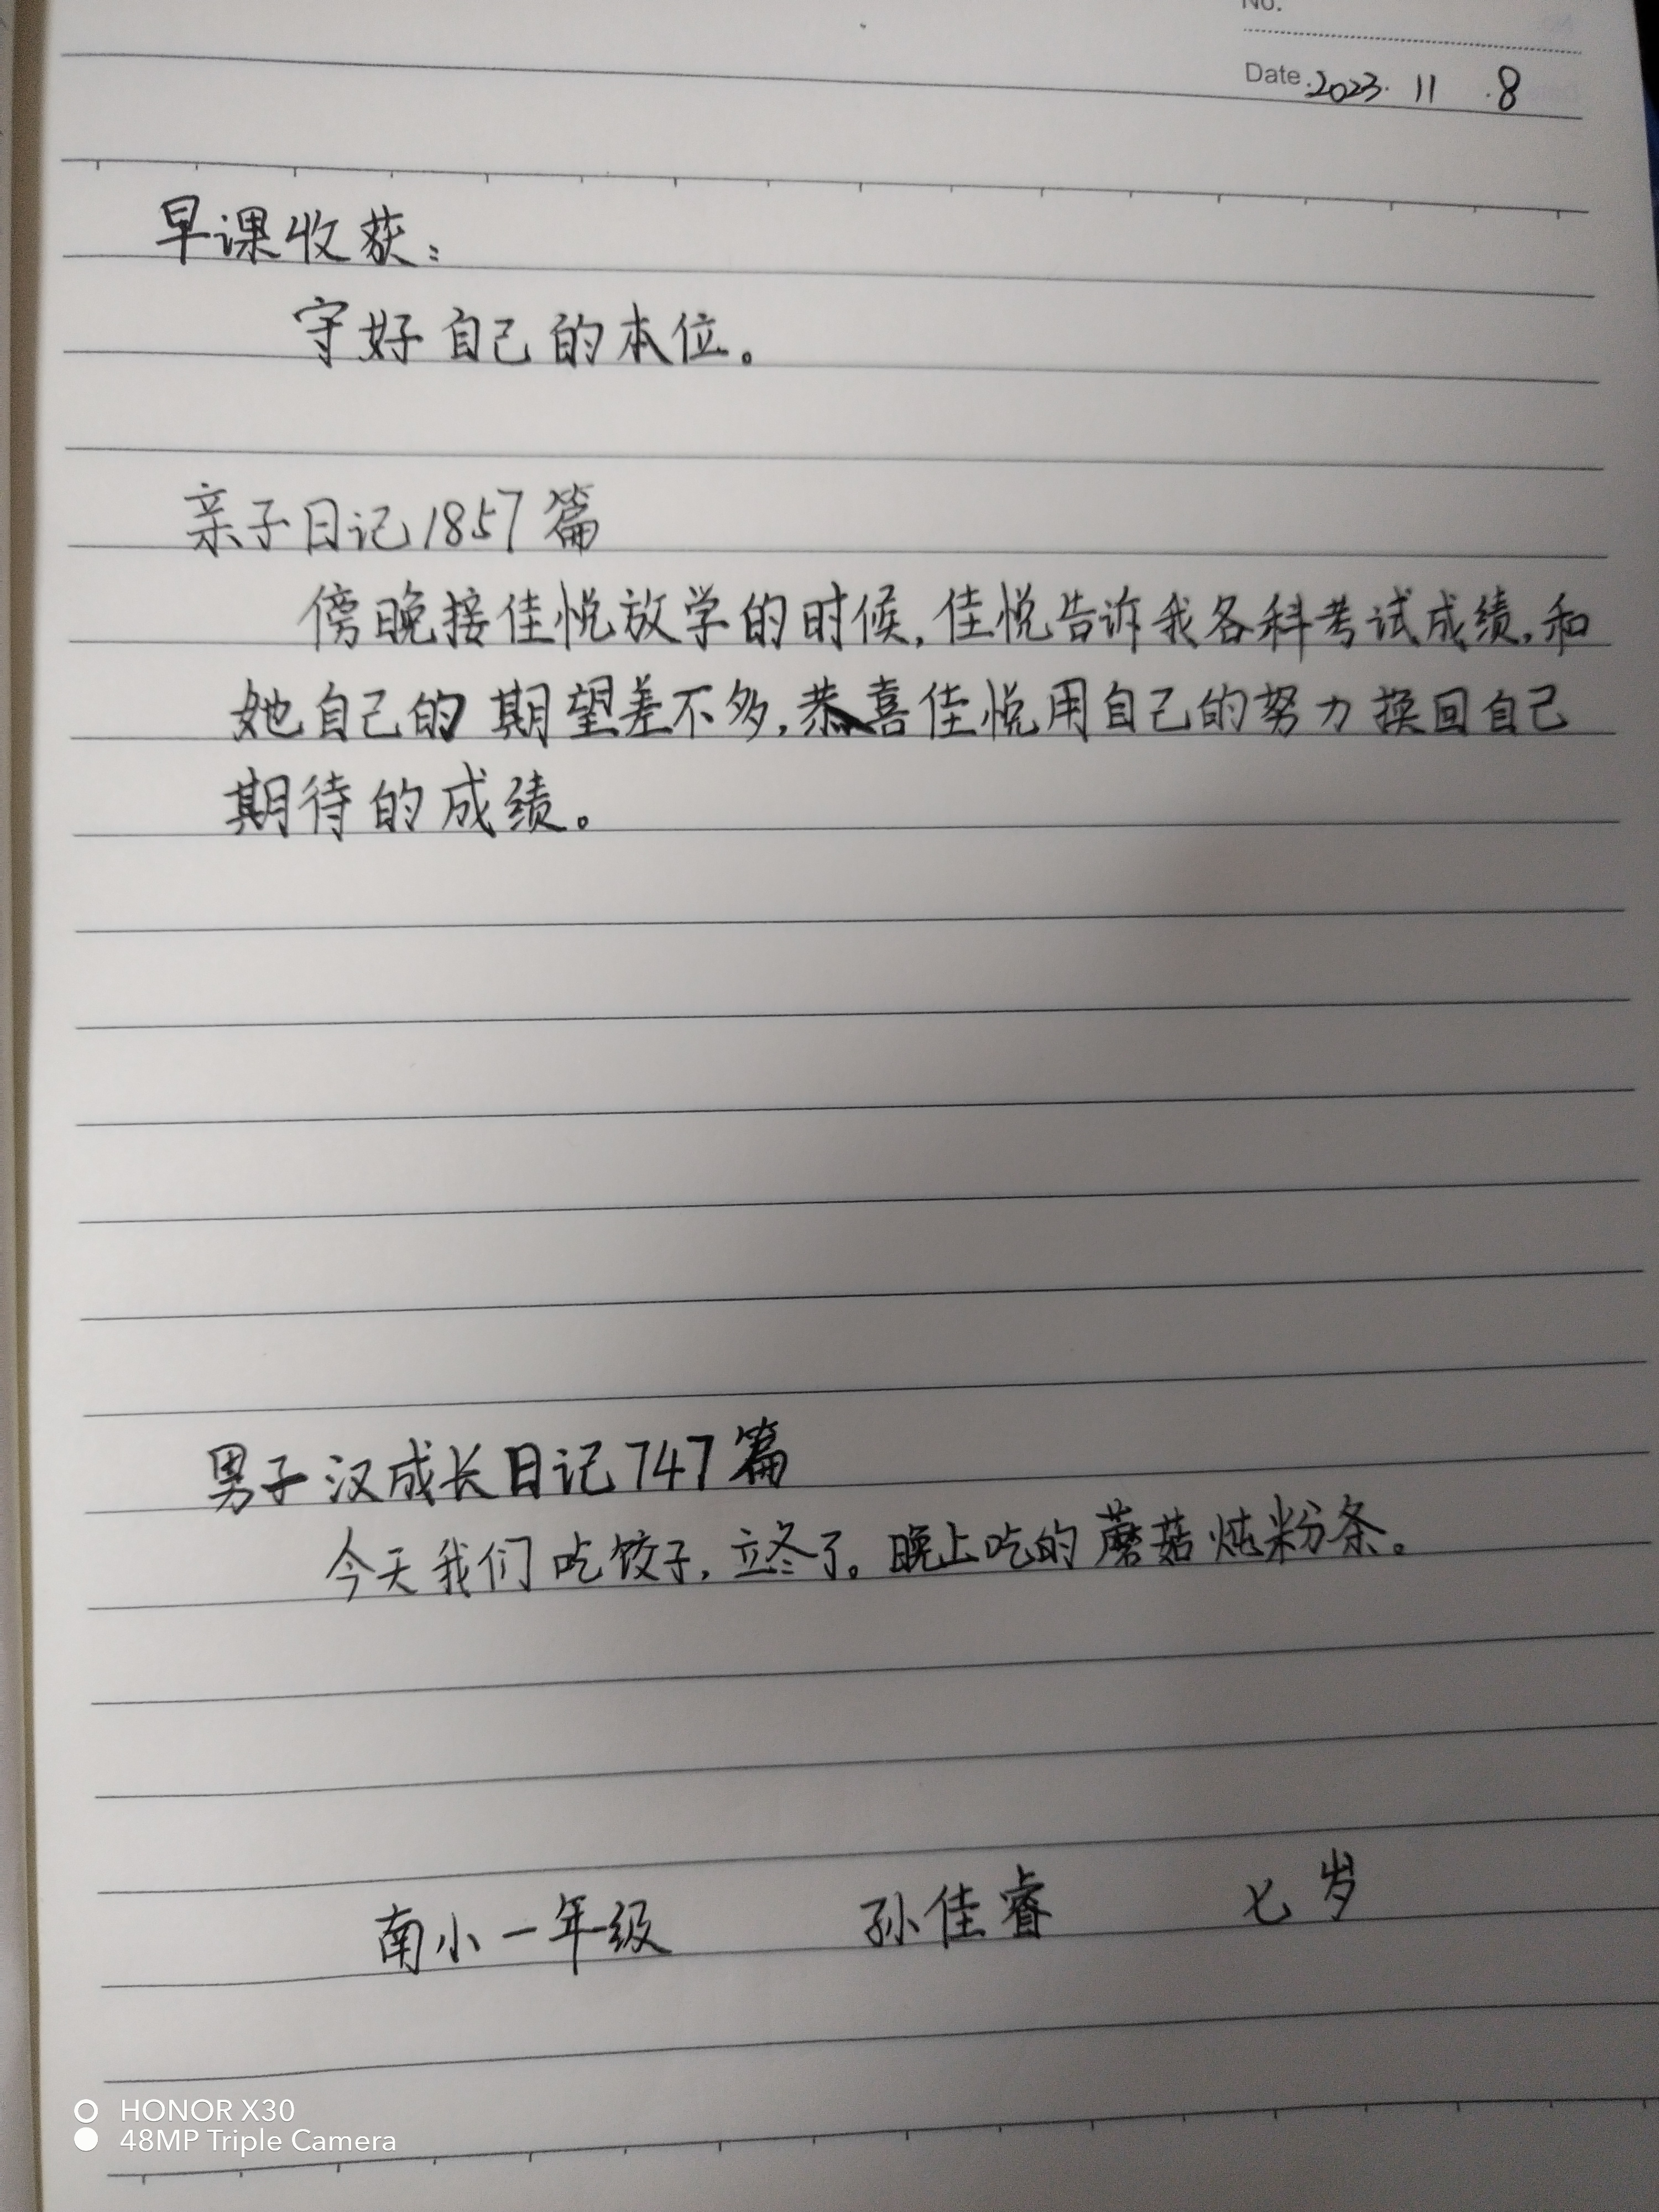 No.
Date 2023. 11 .8
早课收获：
守好自己的本位。
亲子日记1857篇
傍晚接佳悦放学的时候,佳悦告诉我各科考试成绩,和
她自己的期望差不多,恭喜佳悦用自己的努力换回自己
期待的成绩。
男子汉成长日记747篇
今天我们吃饺子,立冬了。晚上吃的蘑菇炖粉条。
南小一年级 孙佳睿 七岁
HONOR X30
48MP Triple Camera